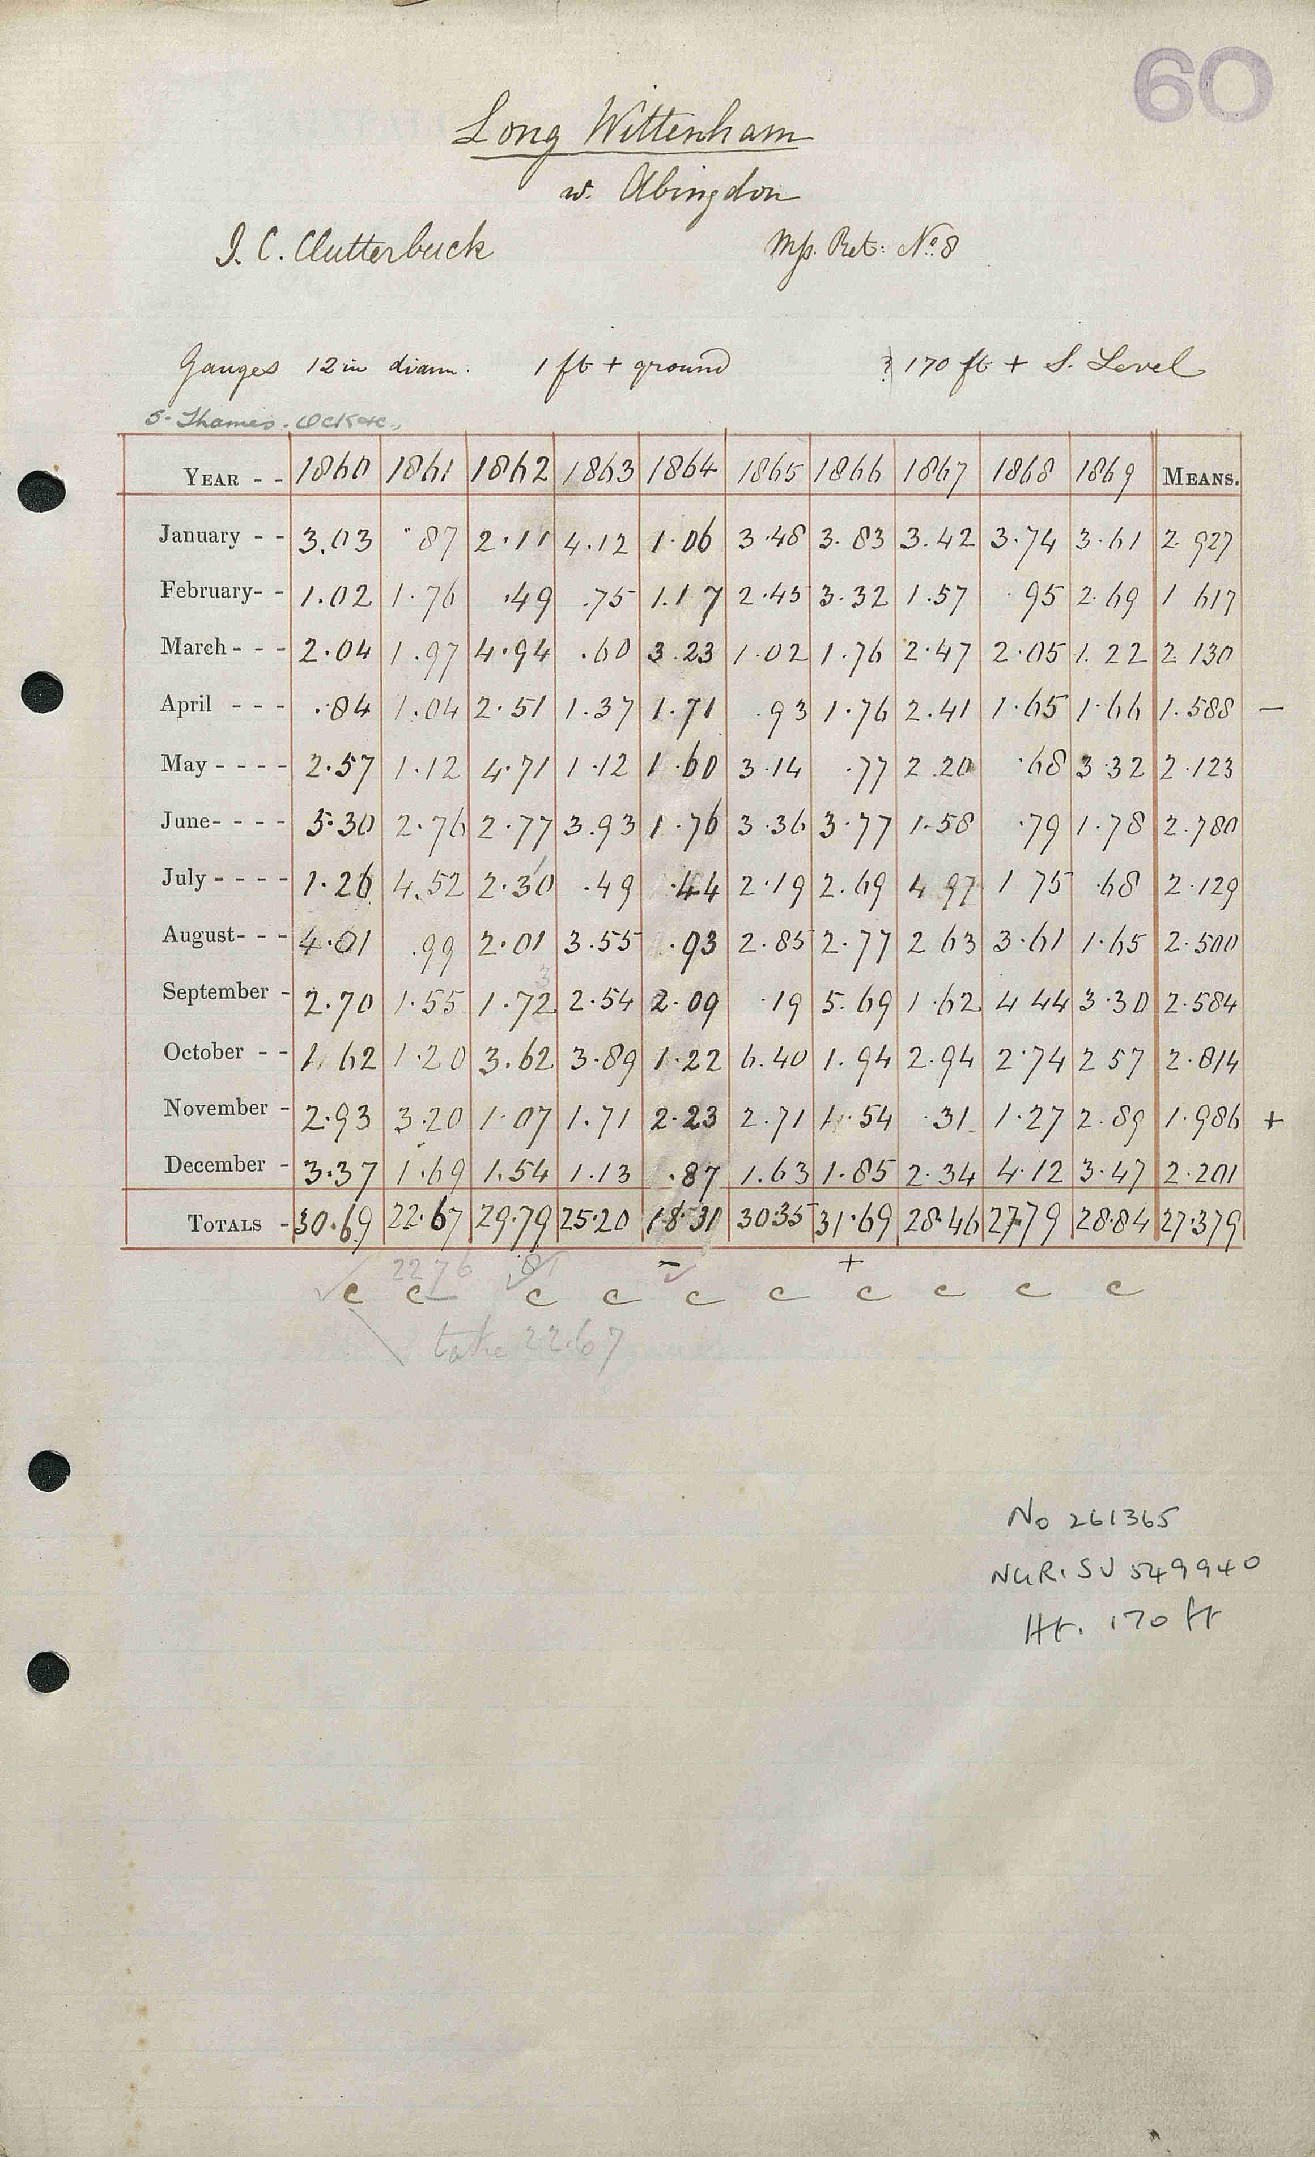 60
Long Wittenham
w. Abingdon
J. C. Clutterbuck Mss. Ret: No. 8
Gauges 12 in diam. 1 ft + ground 170 ft + S. Level
5. Thames. Ock &c.
YEAR - - 1860 1861 1862 1863 1864 1865 1866 1867 1868 1869 MEANS.
January - - 3.03 .87 2.11 4.12 1.06 3.48 3.83 3.42 3.74 3.61 2.927
February- - 1.02 1.76 .49 .75 1.17 2.45 3.32 1.57 .95 2.69 1.617
March - - - 2.04 1.97 4.94 .60 3.23 1.02 1.76 2.47 2.05 1.22 2.130
April - - - .84 1.04 2.51 1.37 1.71 .93 1.76 2.41 1.65 1.66 1.588 —
May - - - - 2.57 1.12 4.71 1.12 1.60 3.14 .77 2.20 .68 3.32 2.123
June- - - - 5.30 2.76 2.77 3.93 1.76 3.36 3.77 1.58 .79 1.78 2.780
July - - - - 1.26 4.52 2.30 .49 .44 2.19 2.69 4.97 1.75 .68 2.129
August- - - 4.01 .99 2.01 3.55 .93 2.85 2.77 2.63 3.61 1.65 2.500
3
September - 2.70 1.55 1.72 2.54 2.09 .19 5.69 1.62 4.44 3.30 2.584
October - - 1.62 1.20 3.62 3.89 1.22 6.40 1.94 2.94 2.74 2.57 2.814
November - 2.93 3.20 1.07 1.71 2.23 2.71 1.54 .31 1.27 2.89 1.986 +
December - 3.37 1.69 1.54 1.13 .87 1.63 1.85 2.34 4.12 3.47 2.201
TOTALS - 30.69 22.67 29.79 25.20 18.31 30.35 31.69 28.46 27.79 28.84 27.379
22 76 81 — +
c c c c c c c c c c
take 22.67
No 261365
NGR. SU 549940
Ht. 170 ft